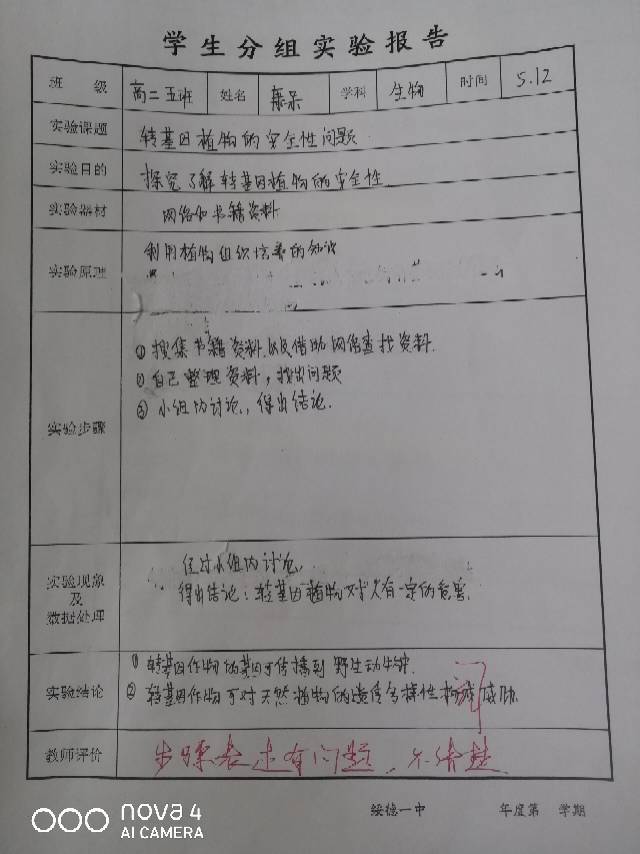 学生分组实验报告
班 级 高二五班 姓名 学科 生物 时间 5.12
实验课题 转基因植物的安全性问题
实验目的 探究了解转基因植物的安全性
实验器材 网络和书籍资料
实验原理 利用植物组织培养的知识
实验步骤
① 搜集书籍资料以及借助网络查找资料.
② 自己整理资料，找出问题
③ 小组内讨论，得出结论.
实验现象及数据处理
经过小组内讨论,
得出结论：转基因植物对人有一定的危害.
实验结论
① 转基因作物的基因可传播到野生动牛钟.
② 转基因作物可对天然植物的遗传多样性构成威胁.
教师评价 步骤表述有问题，不清楚
绥德一中 年度第 学期
nova 4
AI CAMERA